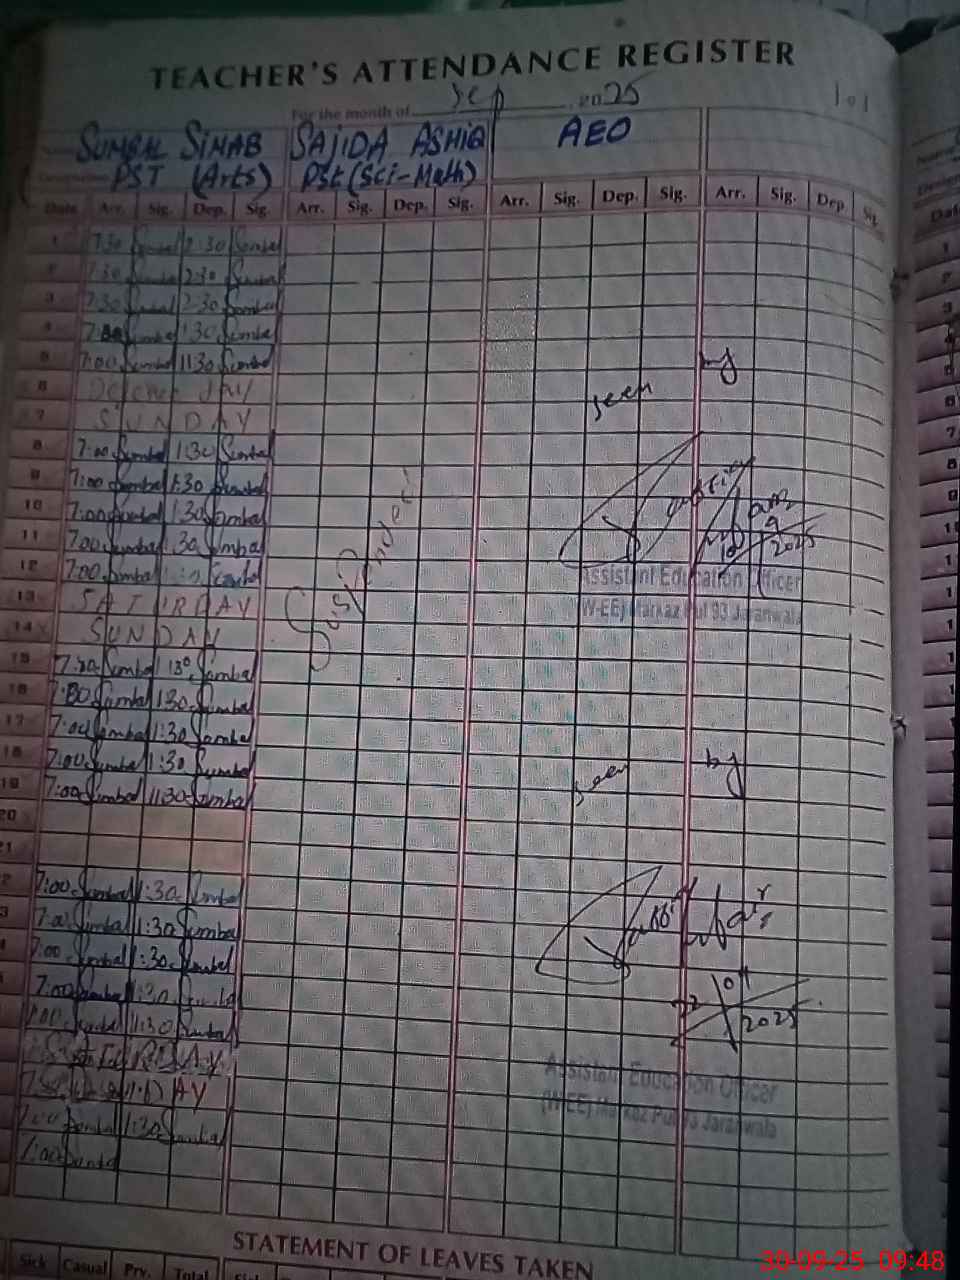 TEACHER'S ATTENDANCE REGISTER
For the month of Sep, 2025
SUMBAL SINAB SAJIDA ASHIQ AEO
PST (Arts) PST (Sci-Math)
Date Arr. Sig. Dep. Sig. Arr. Sig. Dep. Sig. Arr. Sig. Dep. Sig. Arr. Sig. Dep. Sig.
1 7:30 Sumbal 2:30 Sumbal
2 7:30 Sumbal 2:30 Sumbal
3 7:30 Sumbal 2:30 Sumbal
4 Sumbal 1:30 Sumbal
5 7:00 Sumbal 11:30 Sumbal
6 DAY
seen by
7 SUNDAY
8 7:00 Sumbal 1:30 Sumbal
9 7:00 Sumbal 1:30 Sumbal
10 7:00 Sumbal 1:30 Sumbal
11 7:00 Sumbal 1:30 Sumbal
2025
12 7:00 Sumbal Sumbal
Suspended
Assistant Education Officer
13 SATURDAY
(W-EE) Markaz Pul 93 Jaranwala
14 SUNDAY
15 Sumbal 130 Sumbal
16 Sumbal 1:30 Sumbal
17 7:00 Sumbal 1:30 Sumbal
18 7:00 Sumbal 1:30 Sumbal
seen by
19 7:00 Sumbal 11:30 Sumbal
20
21
7:00 Sumbal 1:30 Sumbal
7:00 Sumbal 1:30 Sumbal
7:00 Sumbal 1:30 Sumbal
7:00 Sumbal 1:30
2025
Sumbal 11:30 Sumbal
SATURDAY
Assistant Education Officer
DAY
(W-EE) Markaz Pul 93 Jaranwala
7:00 Sumbal 1:30 Sumbal
7:00
STATEMENT OF LEAVES TAKEN
Sick Casual Prv. Total
30-09-25 09:48